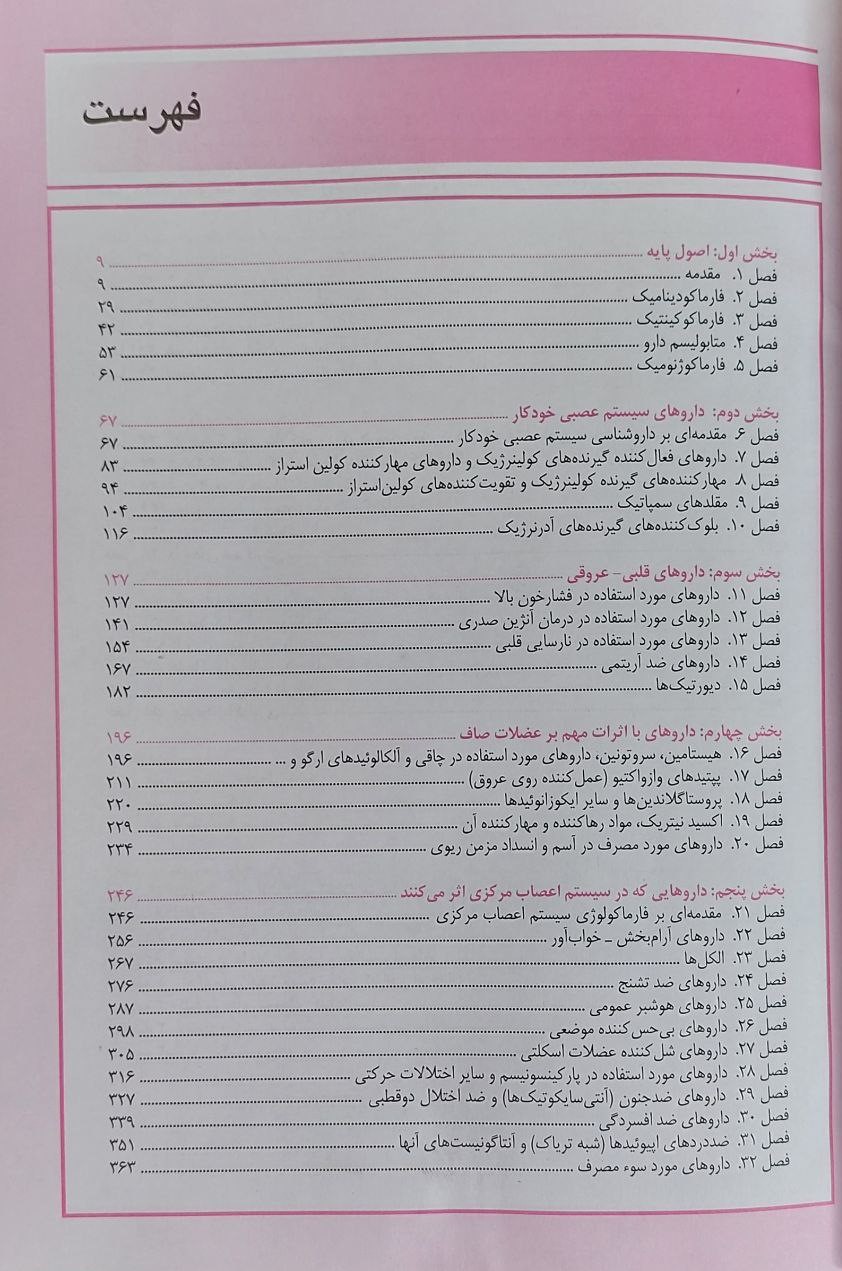 فهرست
بخش اول: اصول پایه ........ ۹
فصل ۱. مقدمه ........ ۹
فصل ۲. فارماکودینامیک ........ ۲۹
فصل ۳. فارماکوکینتیک ........ ۴۲
فصل ۴. متابولیسم دارو ........ ۵۳
فصل ۵. فارماکوژنومیک ........ ۶۱
بخش دوم: داروهای سیستم عصبی خودکار ........ ۶۷
فصل ۶. مقدمه‌ای بر داروشناسی سیستم عصبی خودکار ........ ۶۷
فصل ۷. داروهای فعال‌کننده گیرنده‌های کولینرژیک و داروهای مهارکننده کولین استراز ........ ۸۳
فصل ۸. مهارکننده‌های گیرنده کولینرژیک و تقویت‌کننده‌های کولین‌استراز ........ ۹۴
فصل ۹. مقلدهای سمپاتیک ........ ۱۰۴
فصل ۱۰. بلوک‌کننده‌های گیرنده‌های آدرنرژیک ........ ۱۱۶
بخش سوم: داروهای قلبی- عروقی ........ ۱۲۷
فصل ۱۱. داروهای مورد استفاده در فشارخون بالا ........ ۱۲۷
فصل ۱۲. داروهای مورد استفاده در درمان آنژین صدری ........ ۱۴۱
فصل ۱۳. داروهای مورد استفاده در نارسایی قلبی ........ ۱۵۴
فصل ۱۴. داروهای ضد آریتمی ........ ۱۶۷
فصل ۱۵. دیورتیک‌ها ........ ۱۸۲
بخش چهارم: داروهای با اثرات مهم بر عضلات صاف ........ ۱۹۶
فصل ۱۶. هیستامین، سروتونین، داروهای مورد استفاده در چاقی و آلکالوئیدهای ارگو و ... ........ ۱۹۶
فصل ۱۷. پپتیدهای وازواکتیو (عمل‌کننده روی عروق) ........ ۲۱۱
فصل ۱۸. پروستاگلاندین‌ها و سایر ایکوزانوئیدها ........ ۲۲۰
فصل ۱۹. اکسید نیتریک، مواد رهاکننده و مهارکننده آن ........ ۲۲۹
فصل ۲۰. داروهای مورد مصرف در آسم و انسداد مزمن ریوی ........ ۲۳۴
بخش پنجم: داروهایی که در سیستم اعصاب مرکزی اثر می‌کنند ........ ۲۴۶
فصل ۲۱. مقدمه‌ای بر فارماکولوژی سیستم اعصاب مرکزی ........ ۲۴۶
فصل ۲۲. داروهای آرام‌بخش ـ خواب‌آور ........ ۲۵۶
فصل ۲۳. الکل‌ها ........ ۲۶۷
فصل ۲۴. داروهای ضد تشنج ........ ۲۷۶
فصل ۲۵. داروهای هوشبر عمومی ........ ۲۸۷
فصل ۲۶. داروهای بی‌حس‌کننده موضعی ........ ۲۹۸
فصل ۲۷. داروهای شل‌کننده عضلات اسکلتی ........ ۳۰۵
فصل ۲۸. داروهای مورد استفاده در پارکینسونیسم و سایر اختلالات حرکتی ........ ۳۱۶
فصل ۲۹. داروهای ضدجنون (آنتی‌سایکوتیک‌ها) و ضد اختلال دوقطبی ........ ۳۲۷
فصل ۳۰. داروهای ضد افسردگی ........ ۳۳۹
فصل ۳۱. ضددردهای اپیوئیدها (شبه تریاک) و آنتاگونیست‌های آنها ........ ۳۵۱
فصل ۳۲. داروهای مورد سوء مصرف ........ ۳۶۳